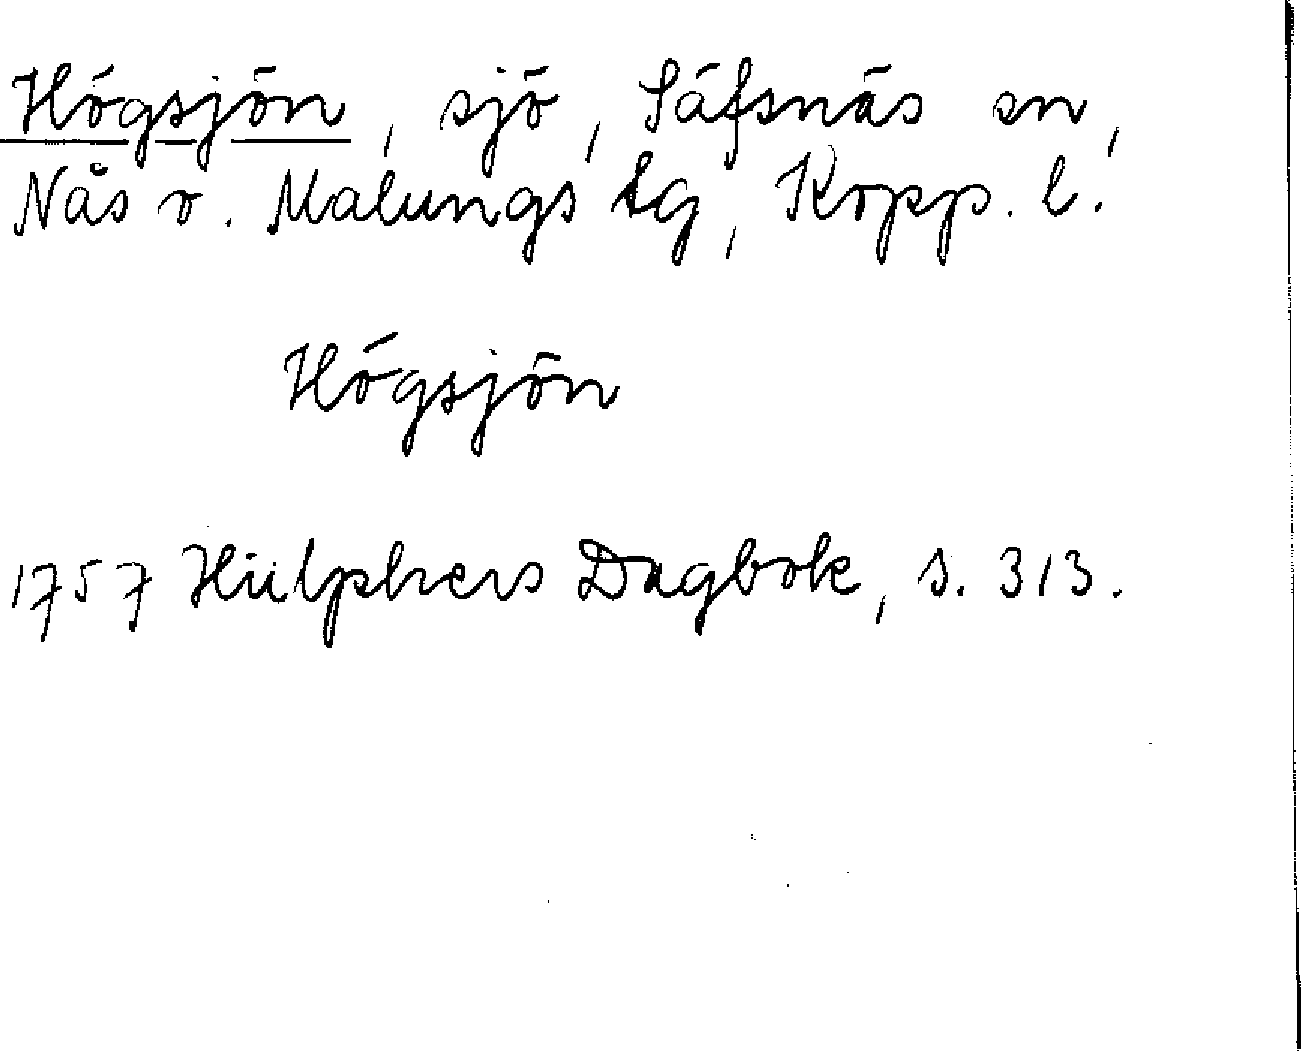 Högsjön, sjö, Säfsnäs sn,
Nås o. Malungs tg, Kopp. l.
Högsjön
1757 Hülphers Dagbok, s. 313.